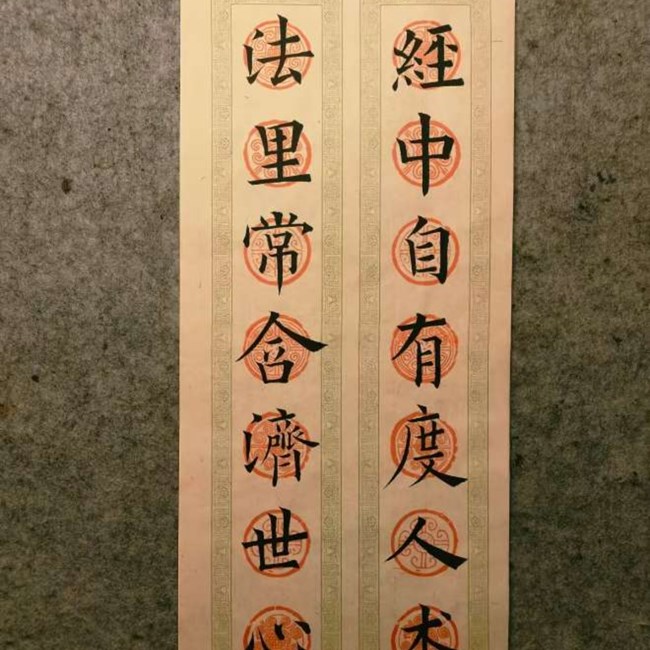 經中自有度人术
法里常含濟世心